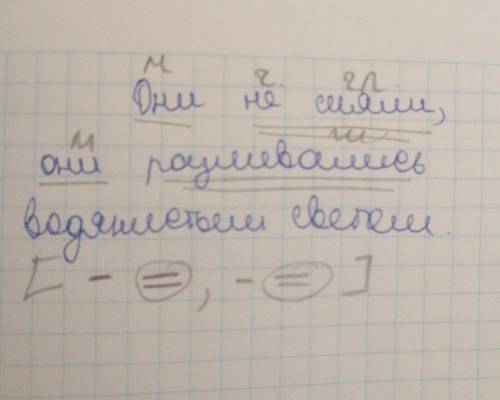 м ч. гл.
Они не сияли,
м
они разливались
водянистым светом.
[ - =, - = ]